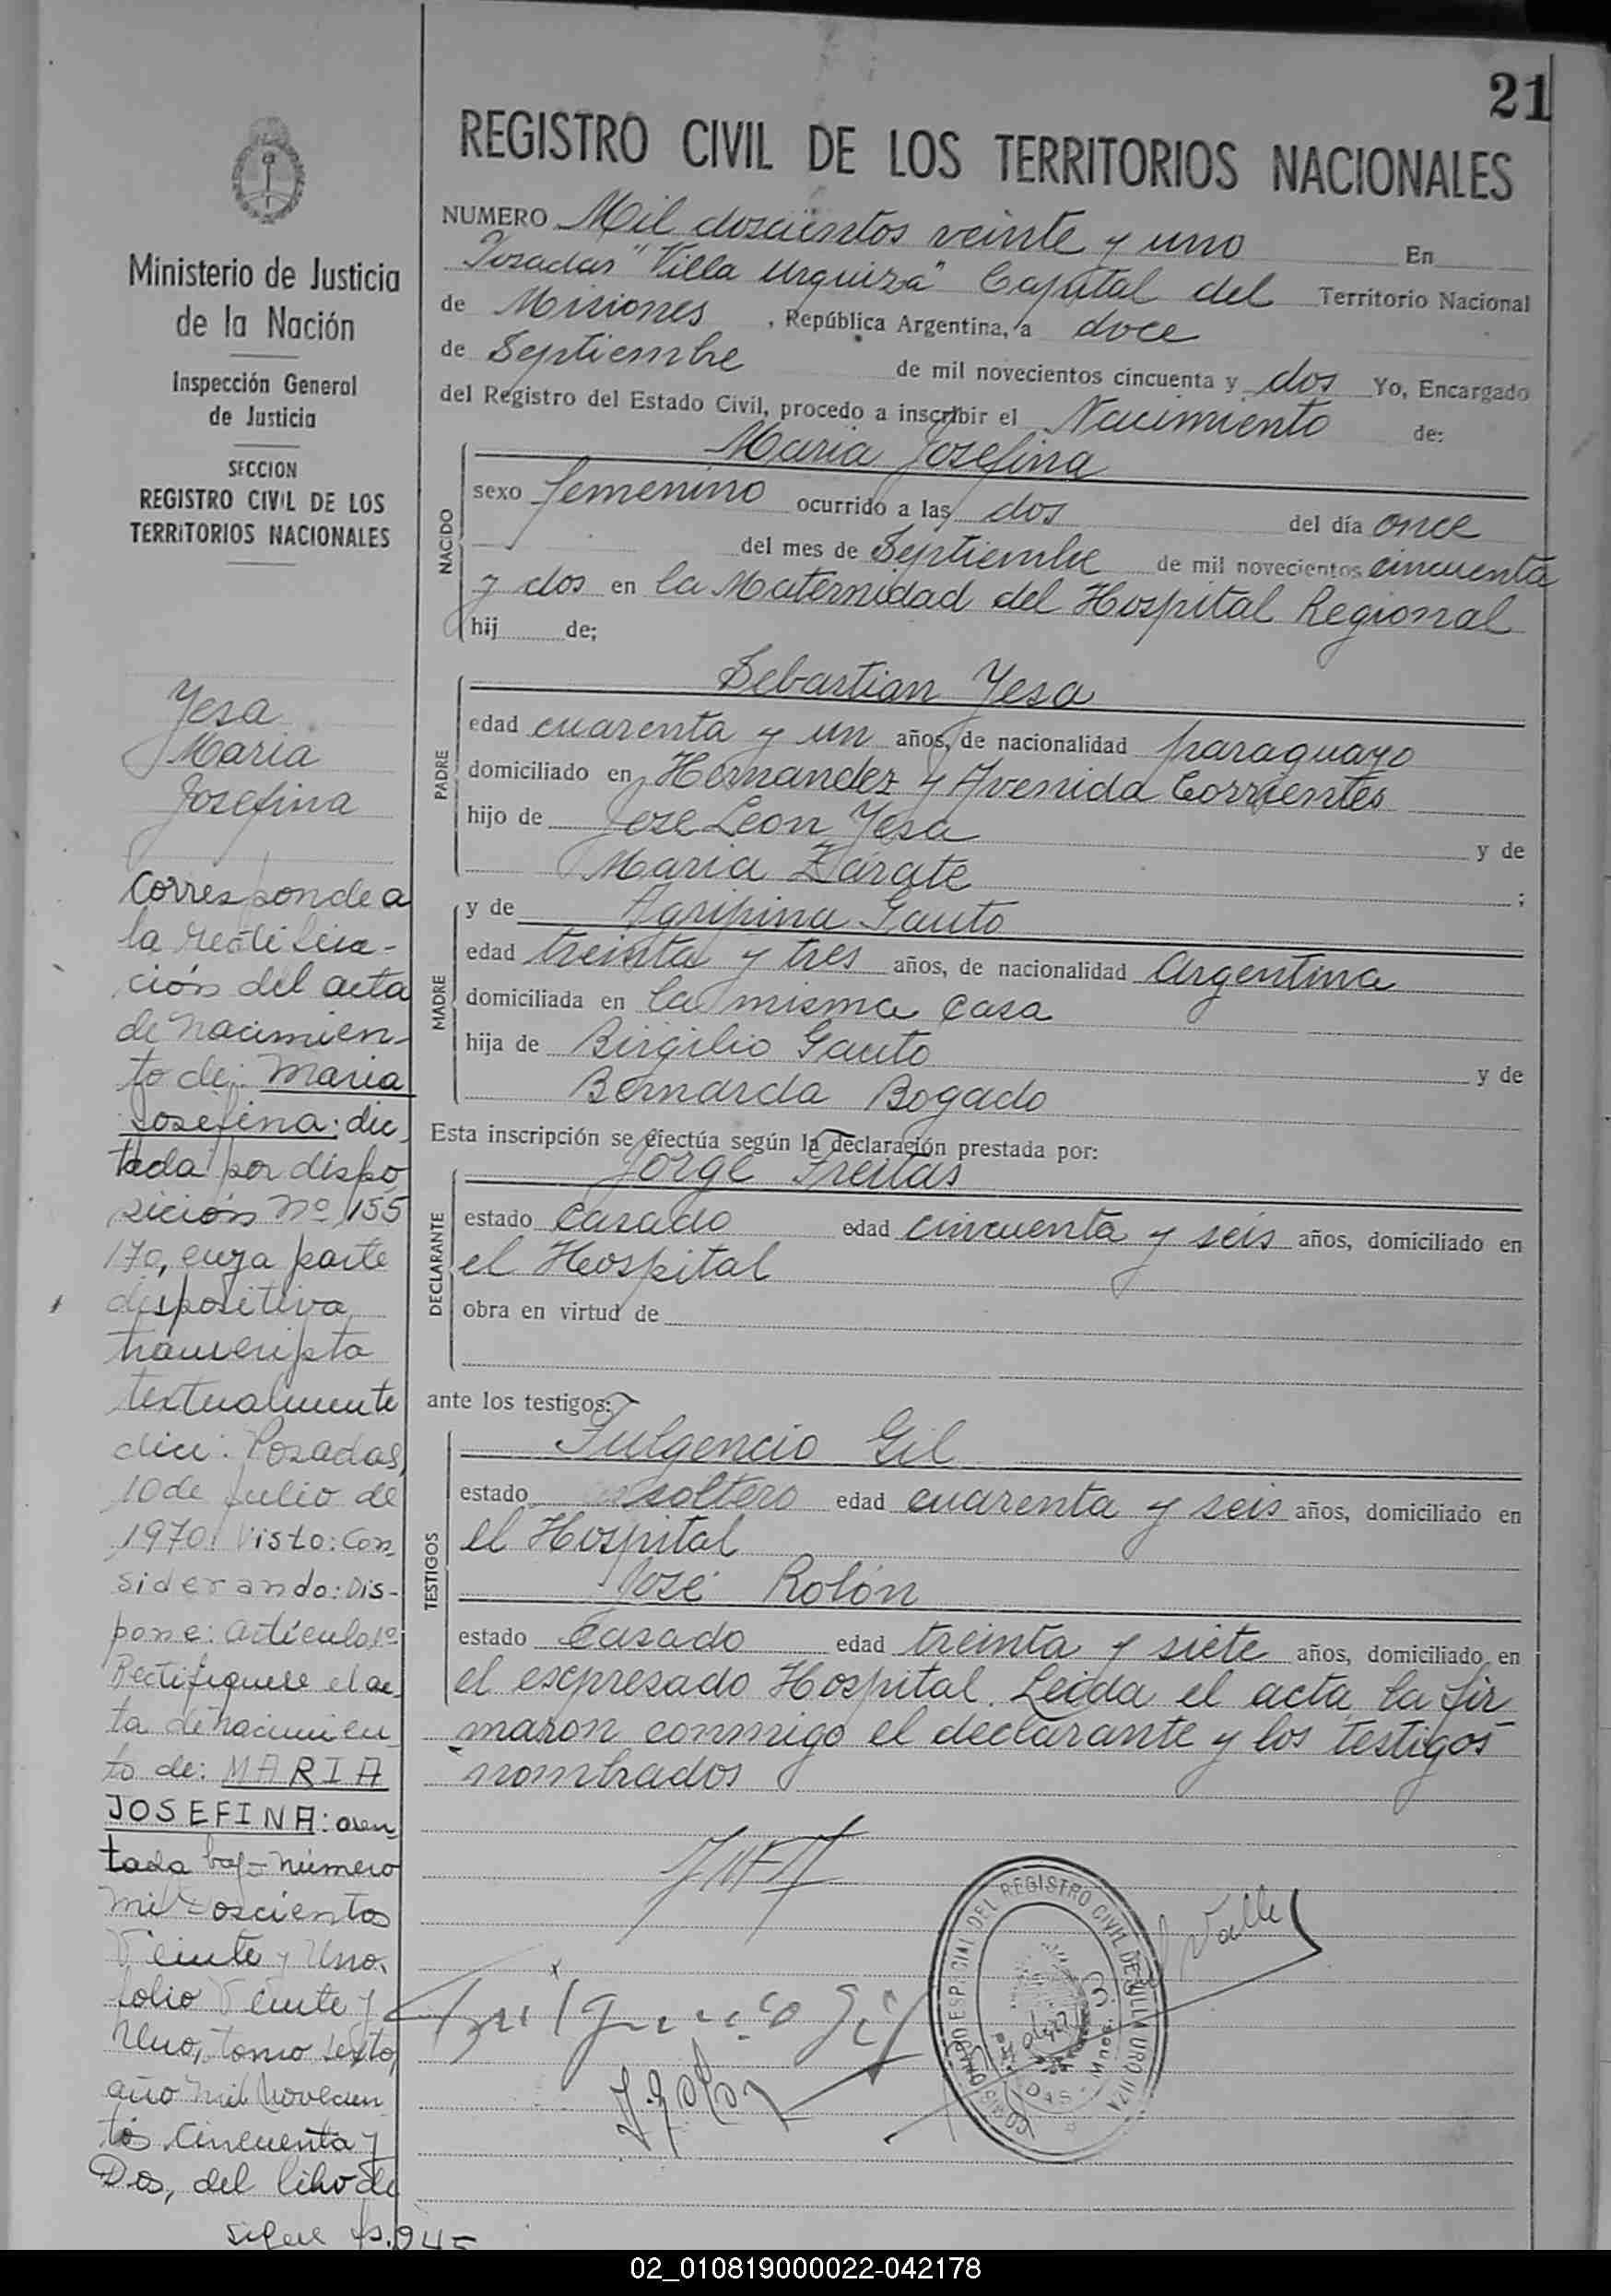 21
REGISTRO CIVIL DE LOS TERRITORIOS NACIONALES
NUMERO Mil doscientos veinte y uno En
Posadas "Villa Urquiza" Capital del Territorio Nacional
de Misiones, República Argentina, a doce
de Septiembre de mil novecientos cincuenta y dos Yo, Encargado
del Registro del Estado Civil, procedo a inscribir el Nacimiento de:
NACIDO
Maria Josefina
sexo femenino ocurrido a las dos del día once
del mes de Septiembre de mil novecientos cincuenta
y dos en la Maternidad del Hospital Regional
hij de;
PADRE
Sebastian Yesa
edad cuarenta y un años, de nacionalidad paraguayo
domiciliado en Hernandez y Avenida Corrientes
hijo de Jose Leon Yesa y de
Maria Zarate ;
MADRE
y de Agripina Gauto
edad treinta y tres años, de nacionalidad Argentina
domiciliada en la misma casa
hija de Birgilio Gauto y de
Bernarda Bogado
Esta inscripción se efectúa según la declaración prestada por:
DECLARANTE
Jorge Freitas
estado Casado edad cincuenta y seis años, domiciliado en
el Hospital
obra en virtud de
ante los testigos:
TESTIGOS
Fulgencio Gil
estado soltero edad cuarenta y seis años, domiciliado en
el Hospital
José Rolón
estado Casado edad treinta y siete años, domiciliado en
el expresado Hospital. Leida el acta la fir
maron conmigo el declarante y los testigos
nombrados
Fulgencio Gil
J Rolon
Valle
DEL REGISTRO CIVIL DE VILLA URQUIZA
Ministerio de Justicia
de la Nación
Inspección General
de Justicia
SECCION
REGISTRO CIVIL DE LOS
TERRITORIOS NACIONALES
Yesa
Maria
Josefina
Corresponde a
la rectifica-
ción del acta
de nacimien-
to de: Maria
Josefina: dic
tada por dispo
sición nº 155
170, cuya parte
dispositiva
transcripta
textualmente
dice: Posadas,
10 de Julio de
1970. Visto: Con
siderando: Dis-
pone: artículo 1º
Rectifiquese el ac
ta de nacimien
to de: MARIA
JOSEFINA: asen
tada bajo número
mil doscientos
Veinte y Uno,
folio Veinte y
Uno, tomo sexto,
año mil Novecien
tos Cincuenta y
Dos, del libro de
sigue fs. 245
02_010819000022-042178